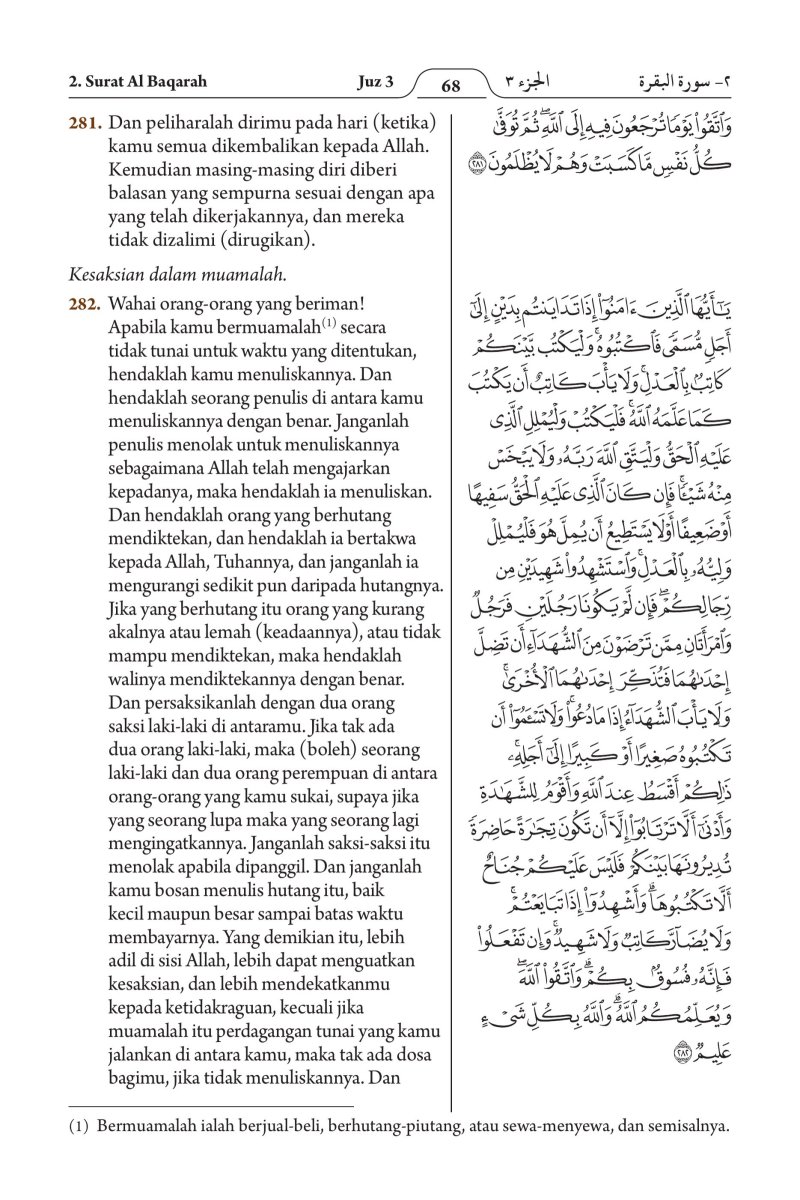 2. Surat Al Baqarah
Juz 3
68
الجزء ٣
٢- سورة البقرة
281. Dan peliharalah dirimu pada hari (ketika)
kamu semua dikembalikan kepada Allah.
Kemudian masing-masing diri diberi
balasan yang sempurna sesuai dengan apa
yang telah dikerjakannya, dan mereka
tidak dizalimi (dirugikan).
Kesaksian dalam muamalah.
282. Wahai orang-orang yang beriman!
Apabila kamu bermuamalah(1) secara
tidak tunai untuk waktu yang ditentukan,
hendaklah kamu menuliskannya. Dan
hendaklah seorang penulis di antara kamu
menuliskannya dengan benar. Janganlah
penulis menolak untuk menuliskannya
sebagaimana Allah telah mengajarkan
kepadanya, maka hendaklah ia menuliskan.
Dan hendaklah orang yang berhutang
mendiktekan, dan hendaklah ia bertakwa
kepada Allah, Tuhannya, dan janganlah ia
mengurangi sedikit pun daripada hutangnya.
Jika yang berhutang itu orang yang kurang
akalnya atau lemah (keadaannya), atau tidak
mampu mendiktekan, maka hendaklah
walinya mendiktekannya dengan benar.
Dan persaksikanlah dengan dua orang
saksi laki-laki di antaramu. Jika tak ada
dua orang laki-laki, maka (boleh) seorang
laki-laki dan dua orang perempuan di antara
orang-orang yang kamu sukai, supaya jika
yang seorang lupa maka yang seorang lagi
mengingatkannya. Janganlah saksi-saksi itu
menolak apabila dipanggil. Dan janganlah
kamu bosan menulis hutang itu, baik
kecil maupun besar sampai batas waktu
membayarnya. Yang demikian itu, lebih
adil di sisi Allah, lebih dapat menguatkan
kesaksian, dan lebih mendekatkanmu
kepada ketidakraguan, kecuali jika
muamalah itu perdagangan tunai yang kamu
jalankan di antara kamu, maka tak ada dosa
bagimu, jika tidak menuliskannya. Dan
وَاتَّقُوا۟ يَوْمًا تُرْجَعُونَ فِيهِ إِلَى اللَّهِ ۖ ثُمَّ تُوَفَّىٰ
كُلُّ نَفْسٍ مَّا كَسَبَتْ وَهُمْ لَا يُظْلَمُونَ ٢٨١
يَـٰٓأَيُّهَا الَّذِينَ ءَامَنُوٓا۟ إِذَا تَدَايَنتُم بِدَيْنٍ إِلَىٰٓ
أَجَلٍ مُّسَمًّى فَاكْتُبُوهُ ۚ وَلْيَكْتُب بَّيْنَكُمْ
كَاتِبٌۢ بِالْعَدْلِ ۚ وَلَا يَأْبَ كَاتِبٌ أَن يَكْتُبَ
كَمَا عَلَّمَهُ اللَّهُ ۚ فَلْيَكْتُبْ وَلْيُمْلِلِ الَّذِى
عَلَيْهِ الْحَقُّ وَلْيَتَّقِ اللَّهَ رَبَّهُۥ وَلَا يَبْخَسْ
مِنْهُ شَيْـًٔا ۚ فَإِن كَانَ الَّذِى عَلَيْهِ الْحَقُّ سَفِيهًا
أَوْ ضَعِيفًا أَوْ لَا يَسْتَطِيعُ أَن يُمِلَّ هُوَ فَلْيُمْلِلْ
وَلِيُّهُۥ بِالْعَدْلِ ۚ وَاسْتَشْهِدُوا۟ شَهِيدَيْنِ مِن
رِّجَالِكُمْ ۖ فَإِن لَّمْ يَكُونَا رَجُلَيْنِ فَرَجُلٌ
وَامْرَأَتَانِ مِمَّن تَرْضَوْنَ مِنَ الشُّهَدَآءِ أَن تَضِلَّ
إِحْدَىٰهُمَا فَتُذَكِّرَ إِحْدَىٰهُمَا الْأُخْرَىٰ ۚ
وَلَا يَأْبَ الشُّهَدَآءُ إِذَا مَا دُعُوا۟ ۚ وَلَا تَسْـَٔمُوٓا۟ أَن
تَكْتُبُوهُ صَغِيرًا أَوْ كَبِيرًا إِلَىٰٓ أَجَلِهِۦ ۚ
ذَٰلِكُمْ أَقْسَطُ عِندَ اللَّهِ وَأَقْوَمُ لِلشَّهَـٰدَةِ
وَأَدْنَىٰٓ أَلَّا تَرْتَابُوٓا۟ ۖ إِلَّآ أَن تَكُونَ تِجَـٰرَةً حَاضِرَةً
تُدِيرُونَهَا بَيْنَكُمْ فَلَيْسَ عَلَيْكُمْ جُنَاحٌ
أَلَّا تَكْتُبُوهَا ۗ وَأَشْهِدُوٓا۟ إِذَا تَبَايَعْتُمْ ۚ
وَلَا يُضَآرَّ كَاتِبٌ وَلَا شَهِيدٌ ۚ وَإِن تَفْعَلُوا۟
فَإِنَّهُۥ فُسُوقٌۢ بِكُمْ ۗ وَاتَّقُوا۟ اللَّهَ ۖ
وَيُعَلِّمُكُمُ اللَّهُ ۗ وَاللَّهُ بِكُلِّ شَىْءٍ
عَلِيمٌ ٢٨٢
(1) Bermuamalah ialah berjual-beli, berhutang-piutang, atau sewa-menyewa, dan semisalnya.